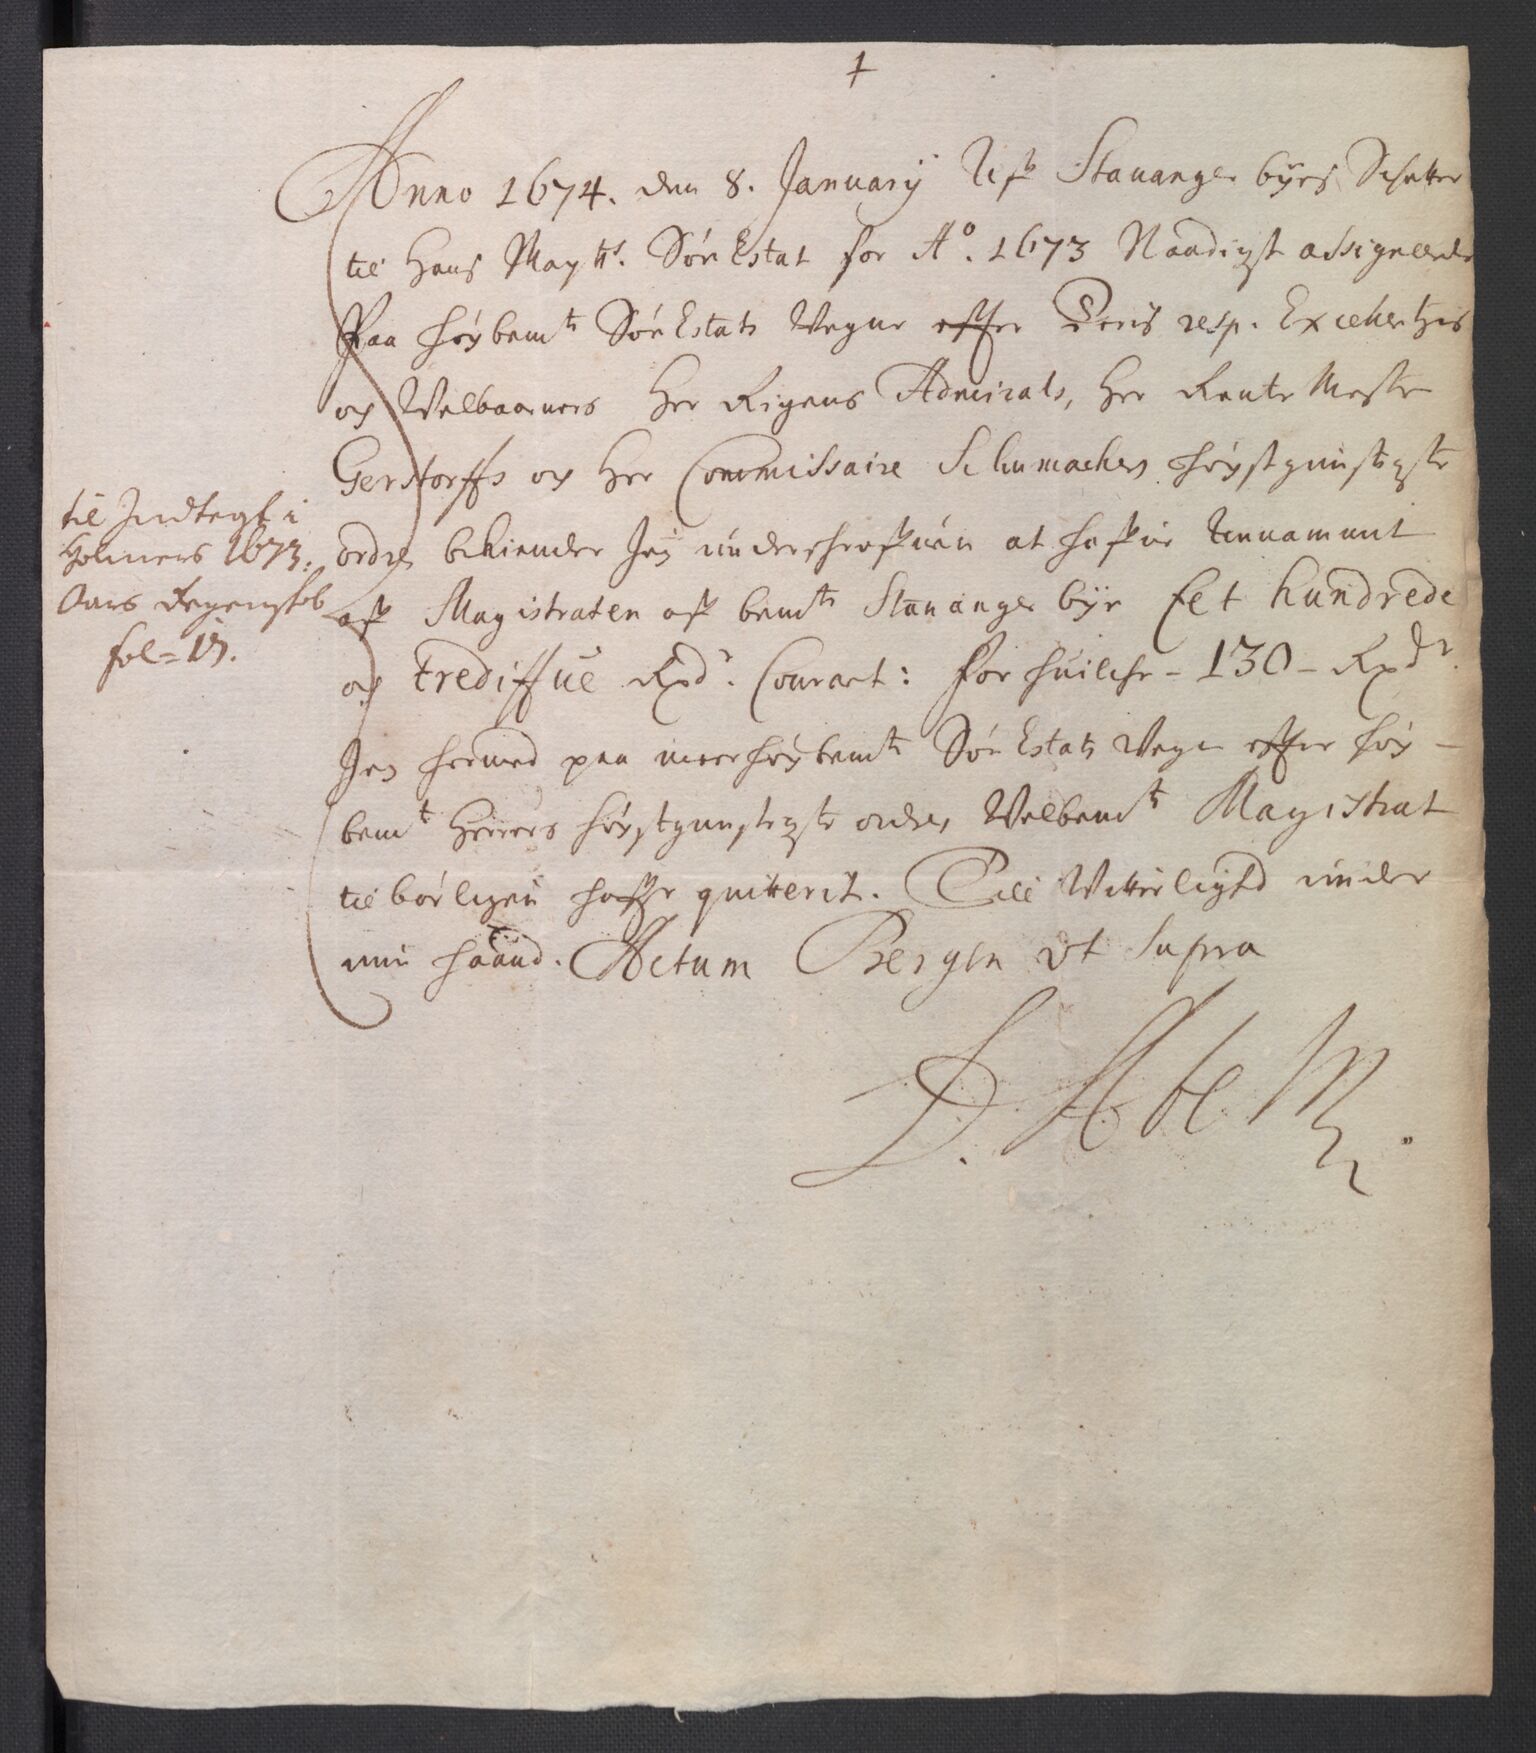 1
Anno 1674. den 8. January Aff Stavanger byes Schatter
til Hans Maytts. Søe Estat for Ao. 1673 Naadigst assignerede
Paa høybemt Søe Estats Vegne effter Deris resp. Excellentzis
og Welbaarners Her Rigens Admirals, Her Rente Mester
Gerstorffs og Her Commissaire Schumachers høystgunstigste
ordre bekiender Jeg underschreffuen at haffue annammit
aff Magistraten aff bemte Stavanger bye Eet hundrede
og trediffue Rxdr. Courant: for huilche - 130 - Rxdr.
Jeg hermed paa meerhøybemte Søe Estats Vegne effter høy-
bemt Herrers høystgunstigste ordre, Velbemte Magistrat
tilbørligen haffr quitterit. Till Vitterlighd under
min haand. Actum Bergen ut Supra
til Indtegt i
Holmers 1673.
Aars Regenskb
fol=